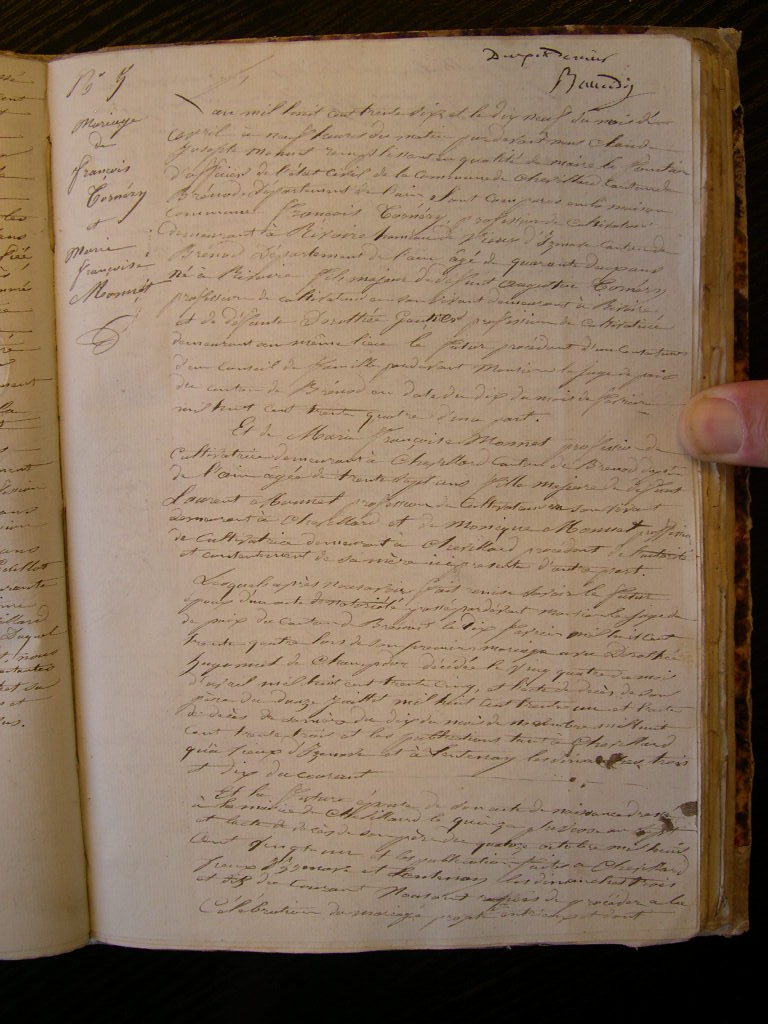 N° 5
Mariage
de
françois
Tornéry
et
Marie
françoise
Monnet
L'an mil huit cent trente six et le dix neuf du mois de
avril à neuf heures du matin par devant nous Claude
Joseph Monnet remplissant en qualité de maire les fonction
d'officier de l'état civil de la Commune de Chevillard canton de
Brénod Département de l'ain, Sont comparus en la maison
commune françois Tornéry, profession de cultivateur
demeurant à Rivoire hameau de Vieux d'Izenave canton de
Brénod Département de l'ain, agé de quarante ans
né à Rivoire fils majeur de defunt augustin Tornéry
profession de cultivateur en son vivant demeurant à Rivoire
et de défunte Dorothée Gautier profession de cultivatrice
demeurant au même lieu le futur procédant
d'un Conseil de famille par devant Monsieur le juge de paix
du canton de Brénod en date du dix du mois de fevrier
mil huit cent trente quatre d'une part.
Et de Marie françoise Monnet profession de
cultivatrice demeurant à Chevillard Canton de Brénod
de l'ain agée de trente sept ans fille majeure de defunt
Laurent Monnet profession de Cultivateur en son vivant
demeurant à Chevillard et de Monique Monnet profession
de Cultivatrice demeurant à Chevillard procédant de l'autorité
et consentement de sa mère ici presente d'autre part.
Lesquels après nous avoir fait remise Savoir le futur
époux d'un acte de notoriété passé par devant Monsieur le juge de
de paix du Canton de Brénod le dix fevrier mil huit cent
trente quatre lors de son premier mariage avec Dorothée
de Champdor décédée le vingt quatre du mois
d'avril mil huit cent trente cinq, et l'acte de décès de son
père du douze juillet mil huit cent trente un et l'acte
de décès de sa mère du dix du mois de novembre mil huit
cent trente trois et les publications tant à Chevillard
qu'à vieux d'Izenave et à Lantenay les dimanches, trois
et dix du courant
Et la future épouse de son acte de naissance dressé
à la mairie de Chevillard le quinze pluviose an Sept
et l'acte de décès de son père du quatre octobre mil huit
cent vingt un et les publication faites à Chevillard
Vieux d'Izenave et Lantenay les dimanches trois
et dix du courant Nous ont requis de procéder à la
Célébration du mariage projeté entr'eux et dont